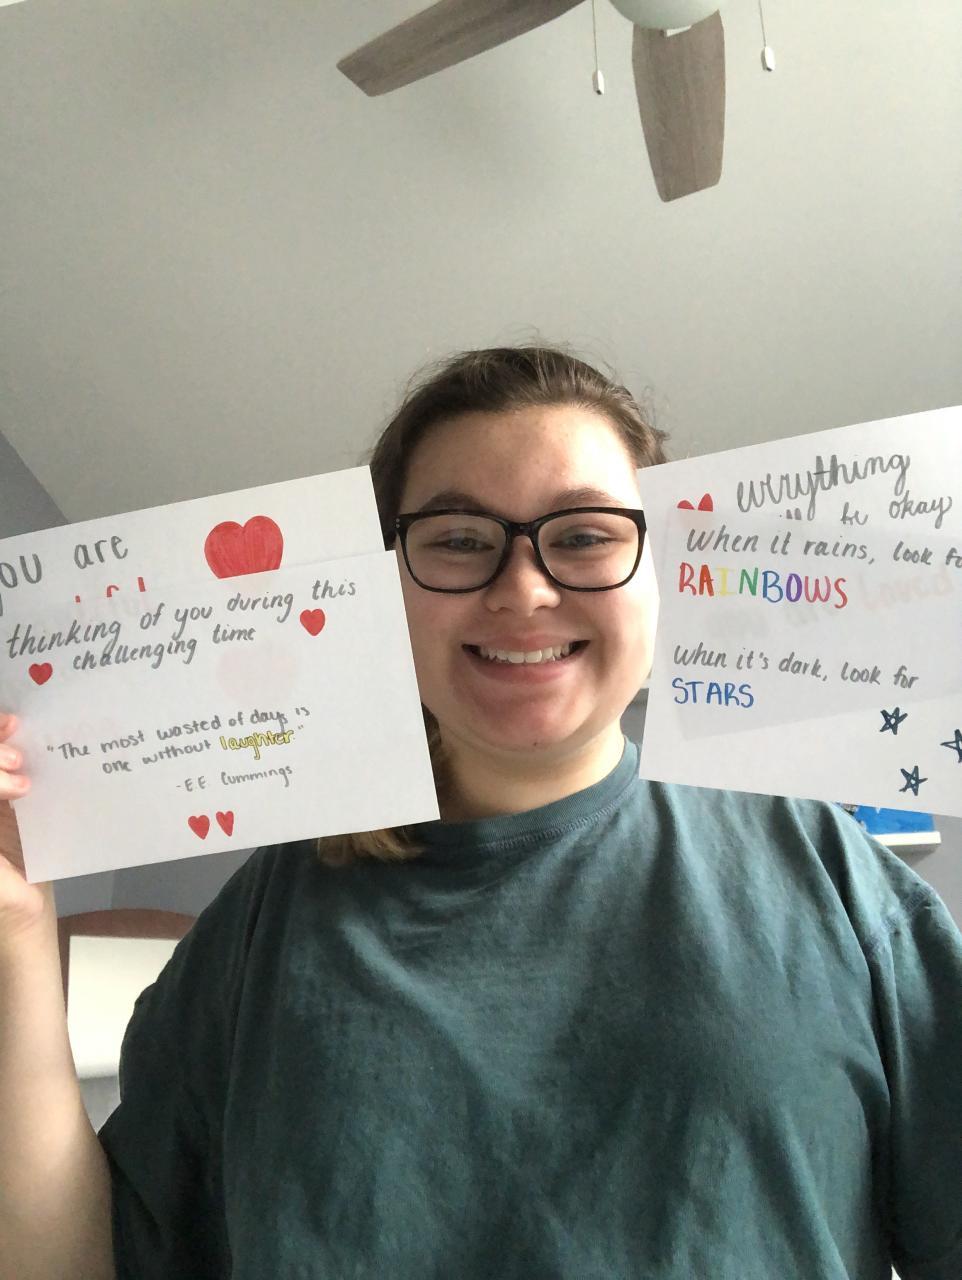 you are
thinking of you during this
challenging time
"The most wasted of days is
one without laughter."
-E.E. Cummings
everything
be okay
When it rains, look fo
RAINBOWS
when it's dark, look for
STARS